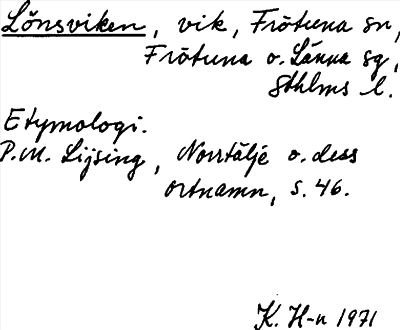 Lönsviken, vik, Frötuna sn,
Frötuna o. Länna sg,
Sthlms l.
Etymologi.
P.M. Lijsing, Norrtälje o. dess
ortnamn, s. 46.
K. H-n 1971